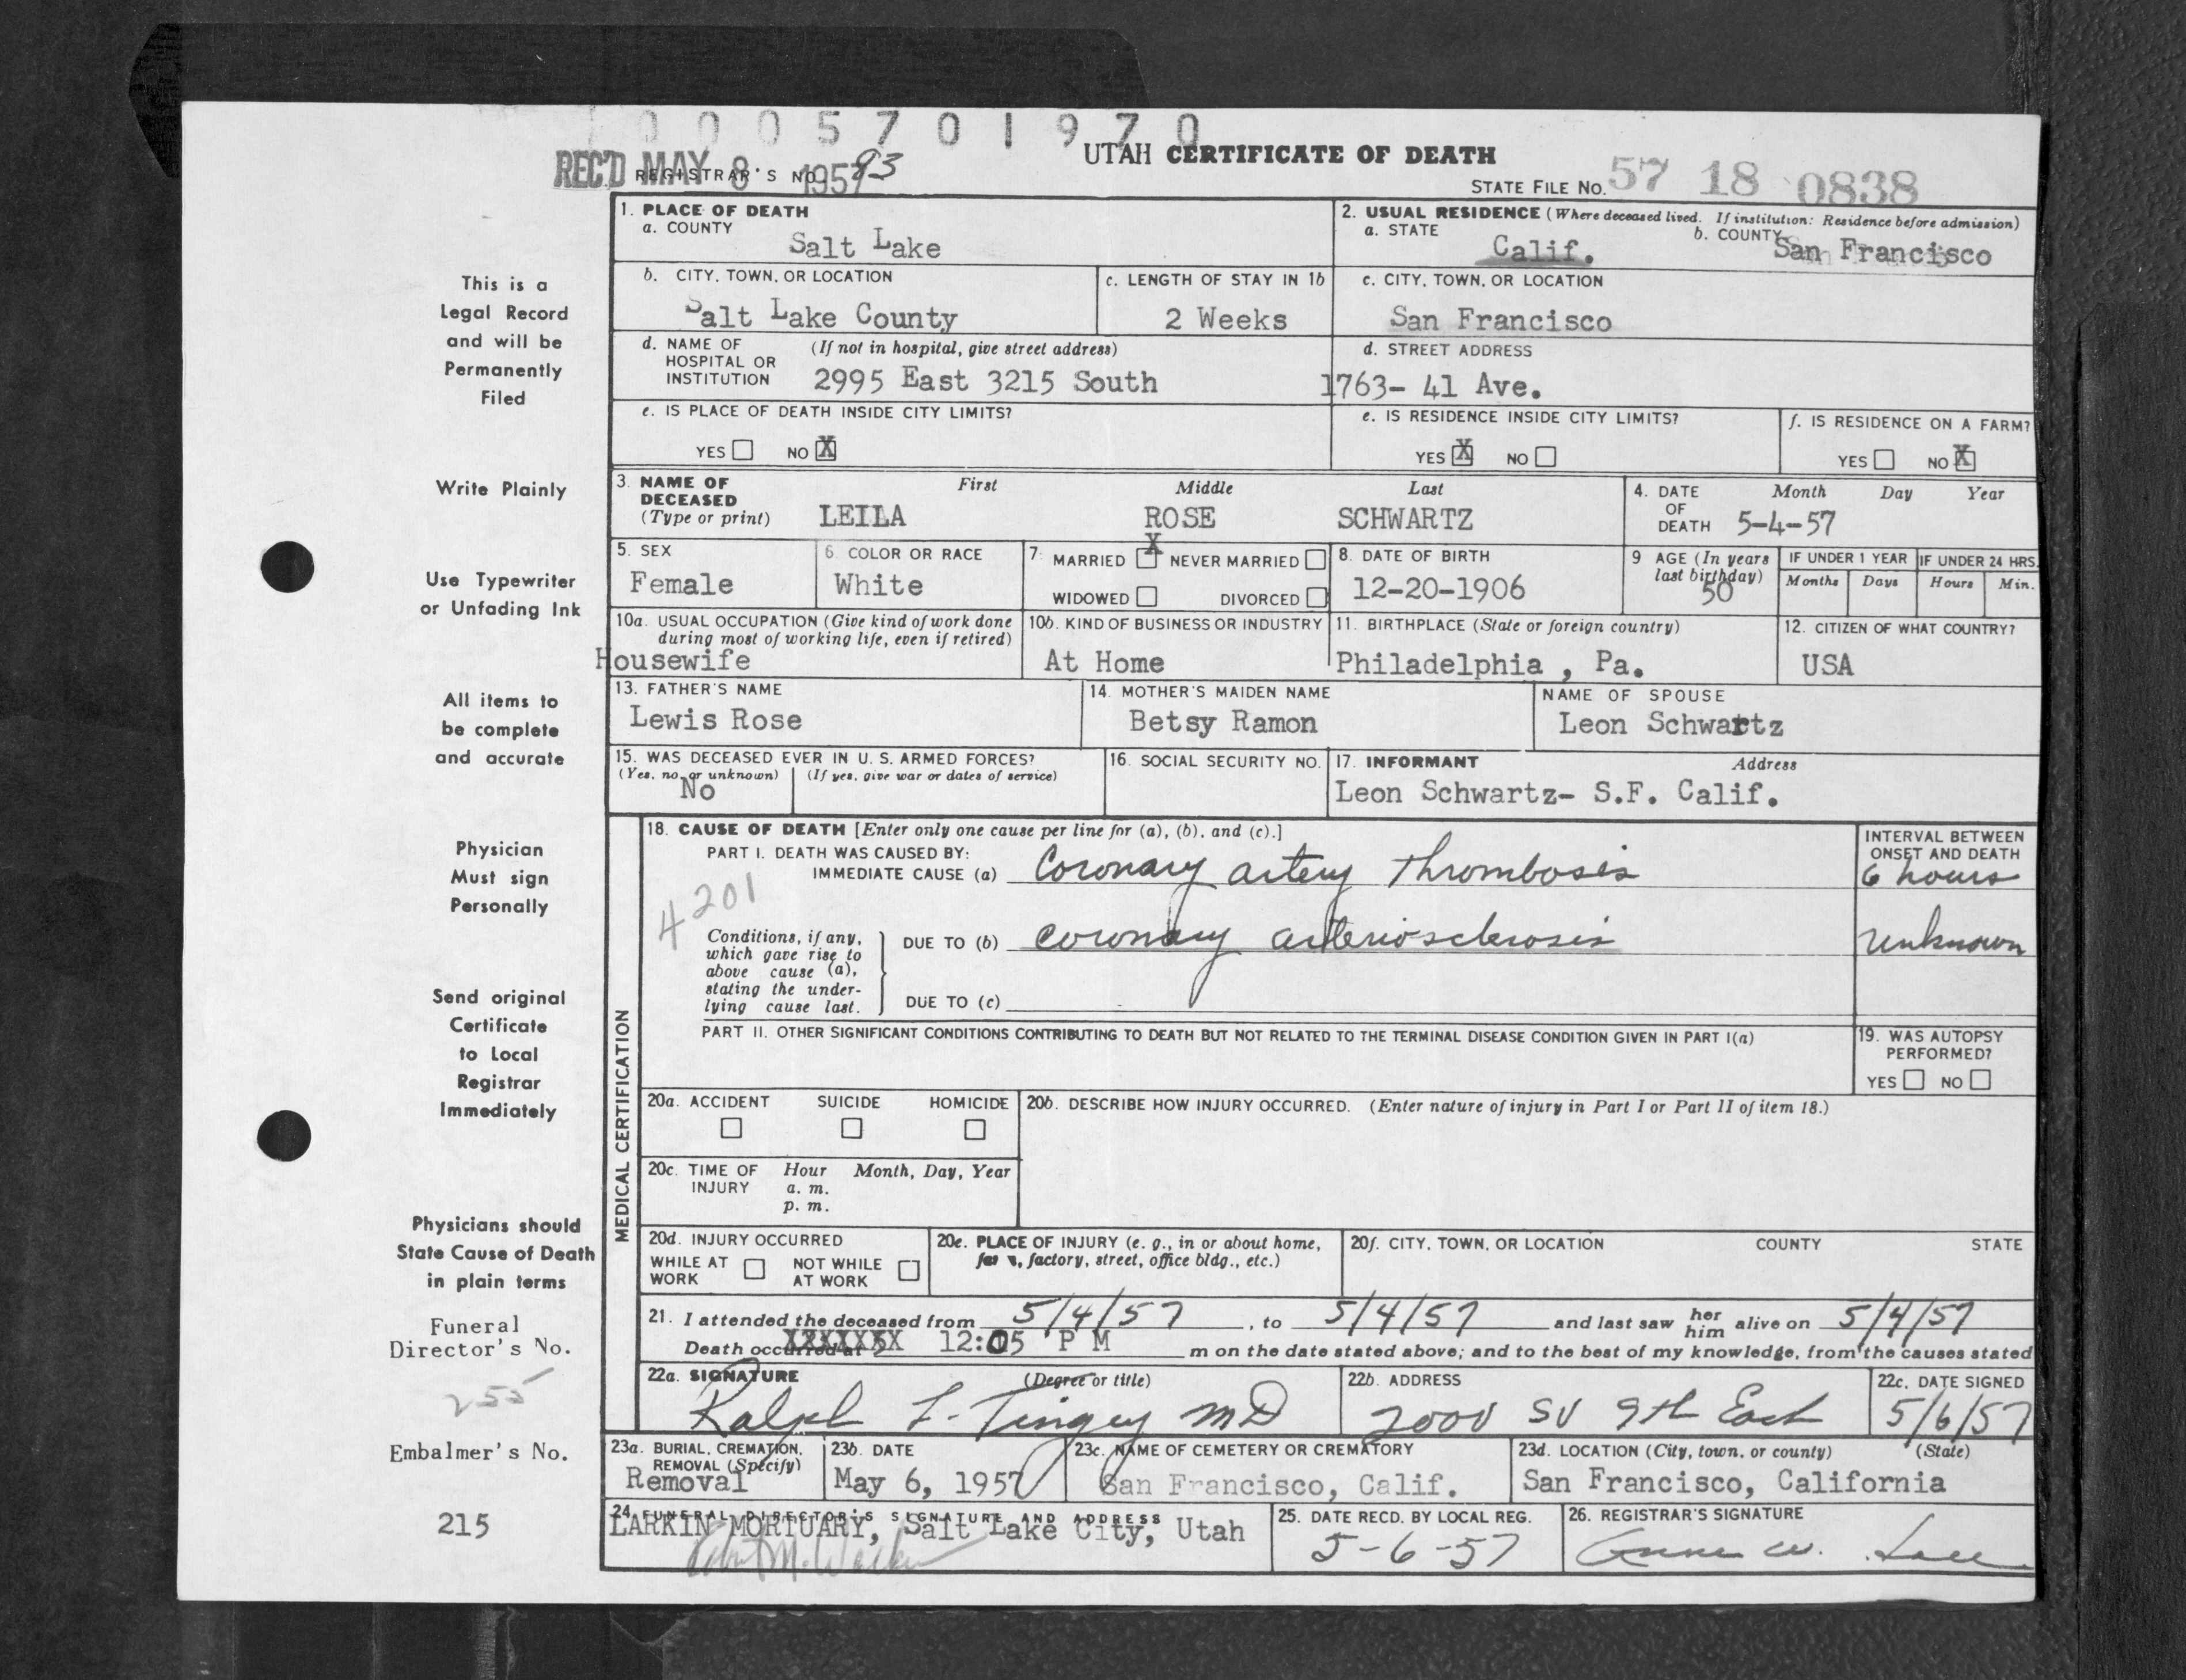 0 0 0 5 7 0 1 9 7 0
UTAH CERTIFICATE OF DEATH
REC'D MAY 8 1957
REGISTRAR'S NO. 93
STATE FILE NO. 57 18 0838
This is a
Legal Record
and will be
Permanently
Filed
Write Plainly
Use Typewriter
or Unfading Ink
All items to
be complete
and accurate
Physician
Must sign
Personally
Send original
Certificate
to Local
Registrar
Immediately
Physicians should
State Cause of Death
in plain terms
Funeral
Director's No.
255
Embalmer's No.
215
1. PLACE OF DEATH
a. COUNTY
Salt Lake
2. USUAL RESIDENCE (Where deceased lived. If institution: Residence before admission)
a. STATE
Calif.
b. COUNTY
San Francisco
b. CITY, TOWN, OR LOCATION
Salt Lake County
c. LENGTH OF STAY IN 1b
2 Weeks
c. CITY, TOWN, OR LOCATION
San Francisco
d. NAME OF HOSPITAL OR INSTITUTION
(If not in hospital, give street address)
2995 East 3215 South
d. STREET ADDRESS
1763- 41 Ave.
e. IS PLACE OF DEATH INSIDE CITY LIMITS?
YES NO X
e. IS RESIDENCE INSIDE CITY LIMITS?
YES X NO
f. IS RESIDENCE ON A FARM?
YES NO X
3. NAME OF DECEASED (Type or print)
First Middle Last
LEILA ROSE SCHWARTZ
4. DATE OF DEATH
Month Day Year
5-4-57
5. SEX
Female
6. COLOR OR RACE
White
7. MARRIED X NEVER MARRIED
WIDOWED DIVORCED
8. DATE OF BIRTH
12-20-1906
9 AGE (In years last birthday)
50
IF UNDER 1 YEAR
Months Days
IF UNDER 24 HRS.
Hours Min.
10a. USUAL OCCUPATION (Give kind of work done during most of working life, even if retired)
Housewife
10b. KIND OF BUSINESS OR INDUSTRY
At Home
11. BIRTHPLACE (State or foreign country)
Philadelphia , Pa.
12. CITIZEN OF WHAT COUNTRY?
USA
13. FATHER'S NAME
Lewis Rose
14. MOTHER'S MAIDEN NAME
Betsy Ramon
NAME OF SPOUSE
Leon Schwartz
15. WAS DECEASED EVER IN U. S. ARMED FORCES?
(Yes, no, or unknown) (If yes, give war or dates of service)
No
16. SOCIAL SECURITY NO.
17. INFORMANT Address
Leon Schwartz- S.F. Calif.
MEDICAL CERTIFICATION
18. CAUSE OF DEATH [Enter only one cause per line for (a), (b), and (c).]
INTERVAL BETWEEN ONSET AND DEATH
PART I. DEATH WAS CAUSED BY:
IMMEDIATE CAUSE (a) Coronary artery thrombosis 6 hours
4201
Conditions, if any, which gave rise to above cause (a), stating the underlying cause last.
DUE TO (b) coronary arteriosclerosis unknown
DUE TO (c)
PART II. OTHER SIGNIFICANT CONDITIONS CONTRIBUTING TO DEATH BUT NOT RELATED TO THE TERMINAL DISEASE CONDITION GIVEN IN PART I(a)
19. WAS AUTOPSY PERFORMED?
YES NO
20a. ACCIDENT SUICIDE HOMICIDE
20b. DESCRIBE HOW INJURY OCCURRED. (Enter nature of injury in Part I or Part II of item 18.)
20c. TIME OF INJURY
Hour Month, Day, Year
a. m.
p. m.
20d. INJURY OCCURRED
WHILE AT WORK NOT WHILE AT WORK
20e. PLACE OF INJURY (e. g., in or about home, farm, factory, street, office bldg., etc.)
20f. CITY, TOWN, OR LOCATION COUNTY STATE
21. I attended the deceased from 5/4/57, to 5/4/57 and last saw her him alive on 5/4/57
Death occurred at XXXXXXX 12:05 P M m on the date stated above; and to the best of my knowledge, from the causes stated
22a. SIGNATURE (Degree or title)
Ralph L. Tingey MD
22b. ADDRESS
2000 So 9th East
22c. DATE SIGNED
5/6/57
23a. BURIAL, CREMATION, REMOVAL (Specify)
Removal
23b. DATE
May 6, 1957
23c. NAME OF CEMETERY OR CREMATORY
San Francisco, Calif.
23d. LOCATION (City, town, or county) (State)
San Francisco, California
24. FUNERAL DIRECTOR'S SIGNATURE AND ADDRESS
LARKIN MORTUARY, Salt Lake City, Utah
25. DATE RECD. BY LOCAL REG.
5-6-57
26. REGISTRAR'S SIGNATURE